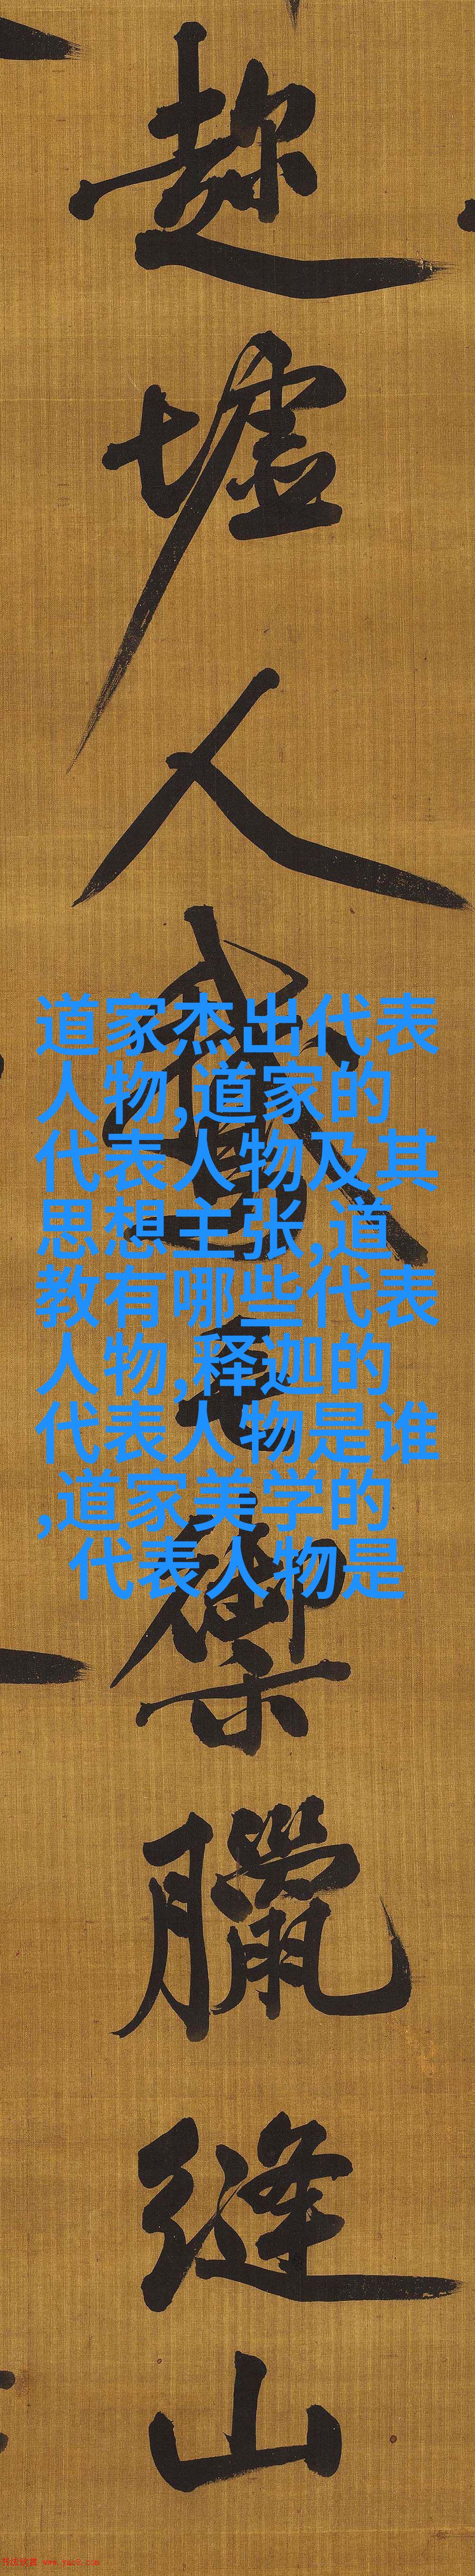 趂墟人鵞毛禦臘縫山
道家杰出代表
人物,道家的
代表人物及其
思想主张,道
教有哪些代表
人物,释迦的
代表人物是谁
,道家美学的
代表人物是